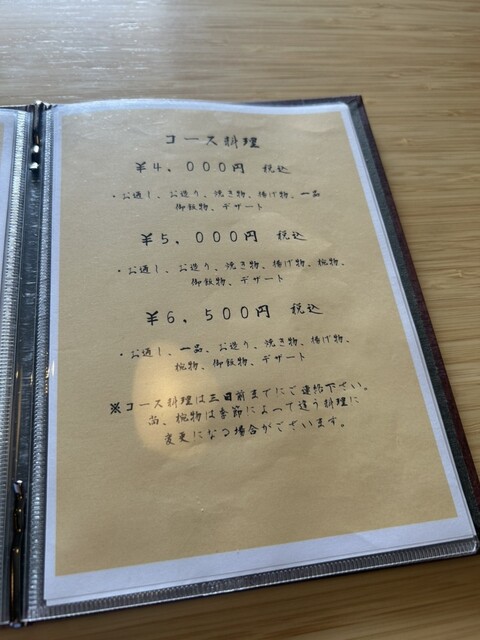 コース料理
￥４，０００円 税込
・お通し、お造り、焼き物、揚げ物、一品
御飯物、デザート
￥５，０００円 税込
・お通し、お造り、焼き物、揚げ物、椀物、
御飯物、デザート
￥６，５００円 税込
・お通し、一品、お造り、焼き物、揚げ物、
椀物、御飯物、デザート
※コース料理は三日前までにご連絡下さい。
尚、椀物は季節によって違う料理に
変更になる場合がございます。